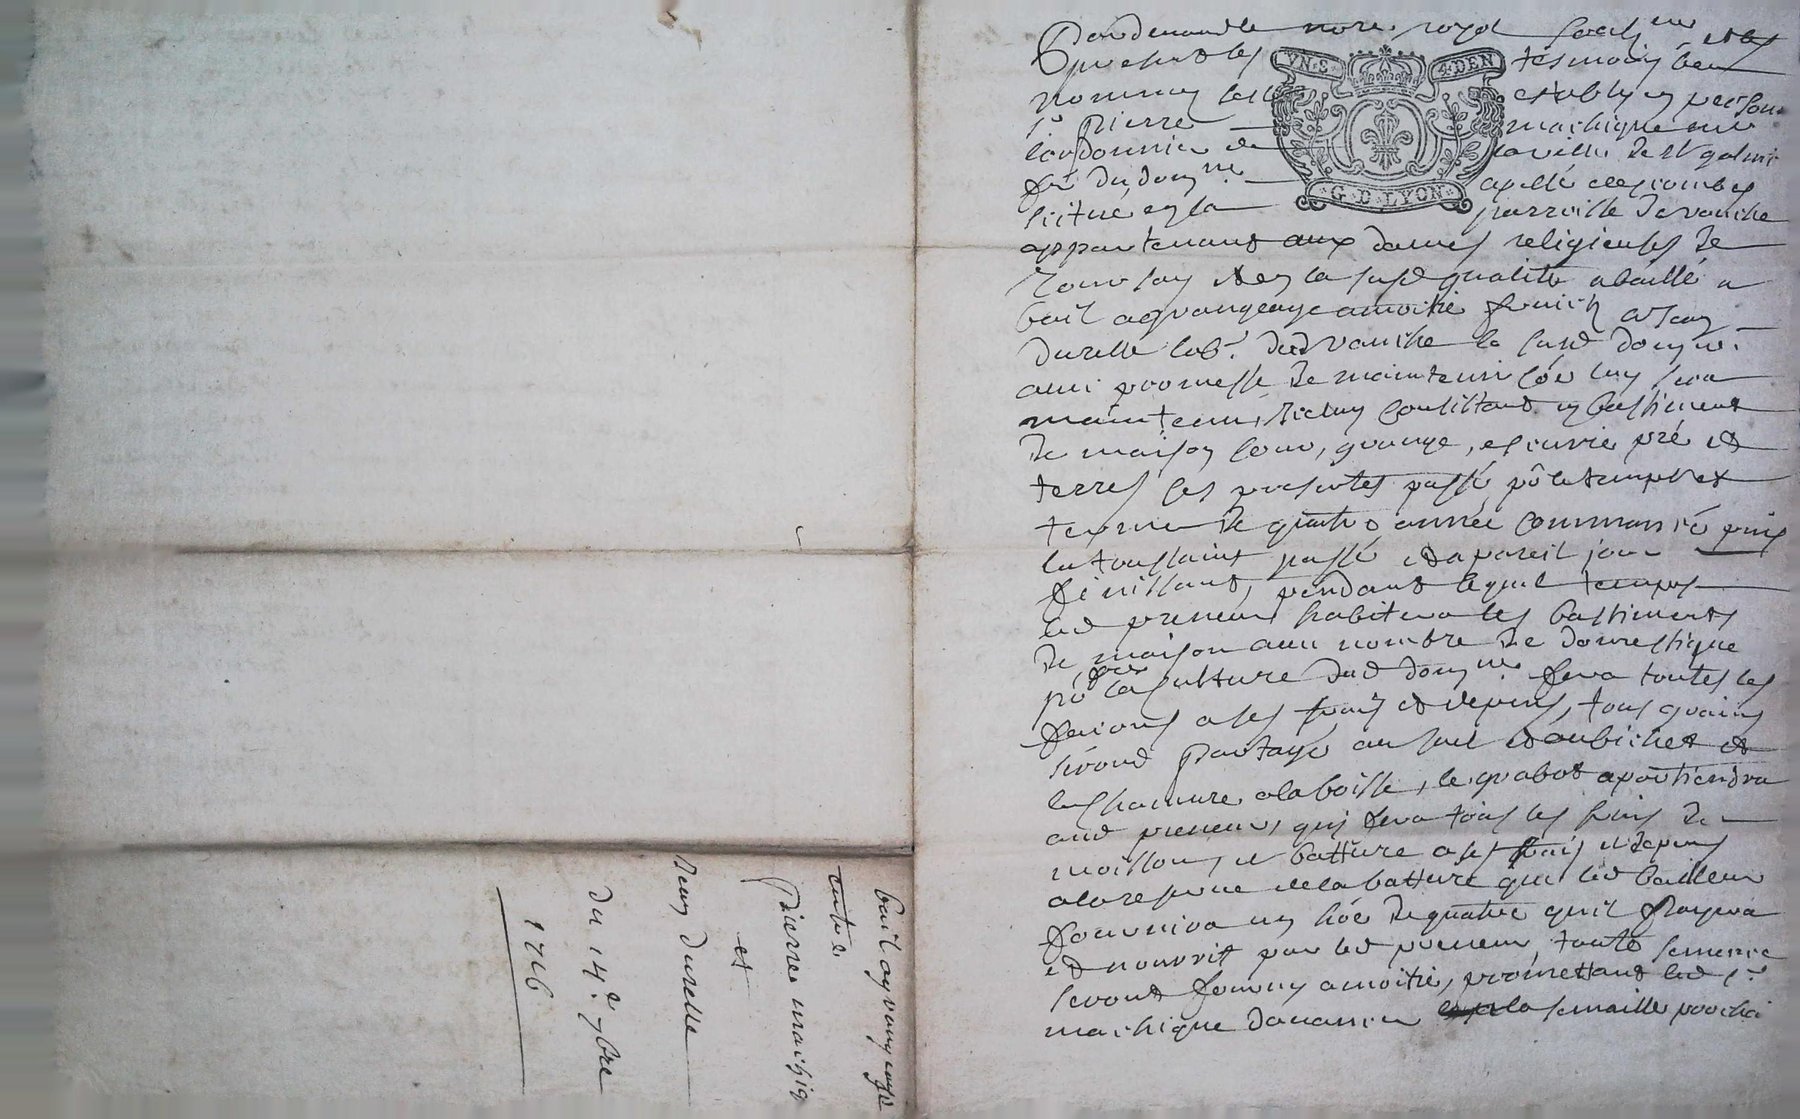 Pardevant le nore royal soubsne et les
presents les tesmoins bas
nommez fut establÿ en personne
sr Pierre machique me
cordonnier de la ville de st galmier
fer du domne apellé des combes
scitué en la parroisse de vauche
appartenant aux dames religieuses de
jourssay et en la susd qualité a baillé a
bail a grangeage a moitié fruich a Jean
durelle labr dud vauche le susd domne
avec promesse de maintenir luy sera
maintenu, Iceluy consistant en bastiment
de maison cour, grange, escurie pré et
terres les presentes passé pô le temps et
terme de quatre année commancé puis
la toussaint passé et a pareil jour
finissant, pendant lequel temps
led preneur habitera les bastiments
de maison avec nombre de domestique
pô la culture dud domne fera toutes les
façons a ses frais et depens, tous grains
seront partagé au sueil et au bichet et
la chanvre a la boisse, le grabot apartiendra
aud preneur, qui fera tous les frais de
moisson, et batture a ses frais et depens
a la reserve de la batture que led bailleur
fournira un hôe de quatre qu'il payera
et nourrit par led preneur toute semence
seront fourny a moitié, promettant led sr
machique d'avancer la semaille prochê
VN·S·
4·DEN
·G·D·LYON·
bail a grangeage
entre
Pierre machiq
et
Jean durelle
du 14e 9bre
1716